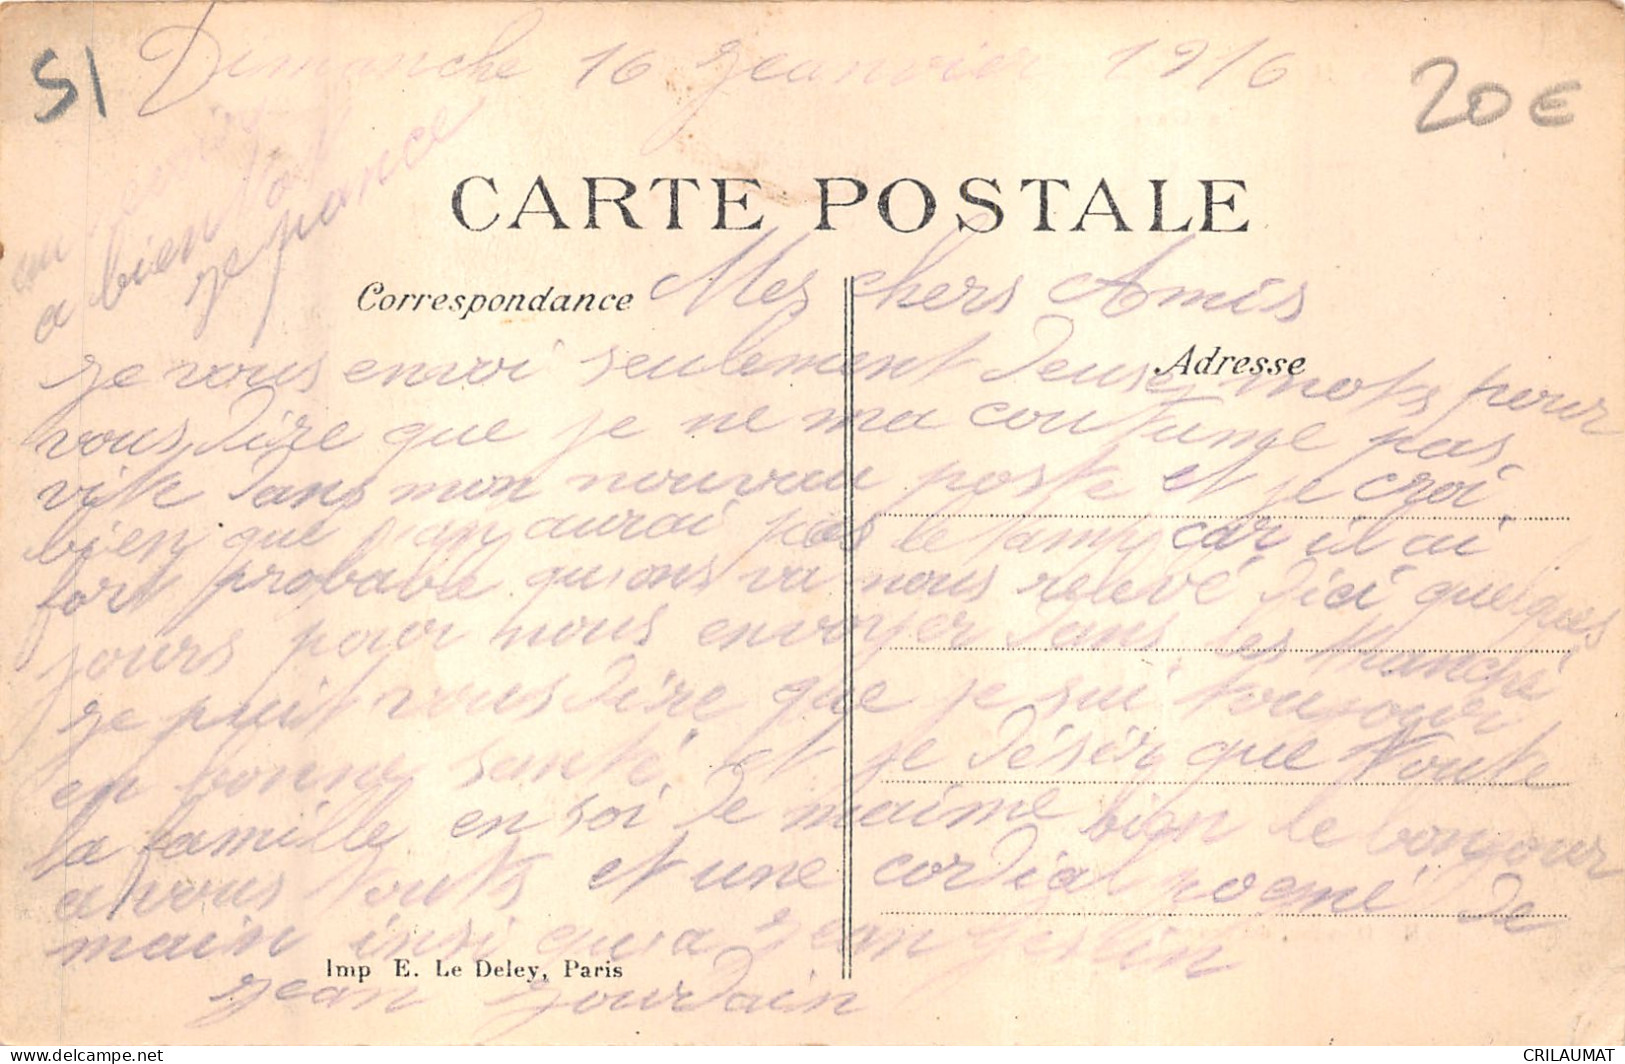 51
Dimanche 16 Jeanvier 1916
20€
au revoir
a bientot
je pance
CARTE POSTALE
Correspondance
Mes chers Amis
Adresse
je vous envoi seulement deuse mots pour
vous dire que je ne ma coutume pas
vite dans mon nouvau poste et je croi
bien que j'an aurai pas le tamp car il ai
fort probable qu'ons va nous relevé d'ici quelques
jours pour nous envoyer dans les tranché
je puit vous dire que je sui toujour
en bonne santé et je désir que toute
la famille en soi de maime bien le bonjour
a vous touts et une cordial pogné de
main insi qu'a Jean
Imp E. Le Deley, Paris
Jean Jourdain
CRILAUMAT